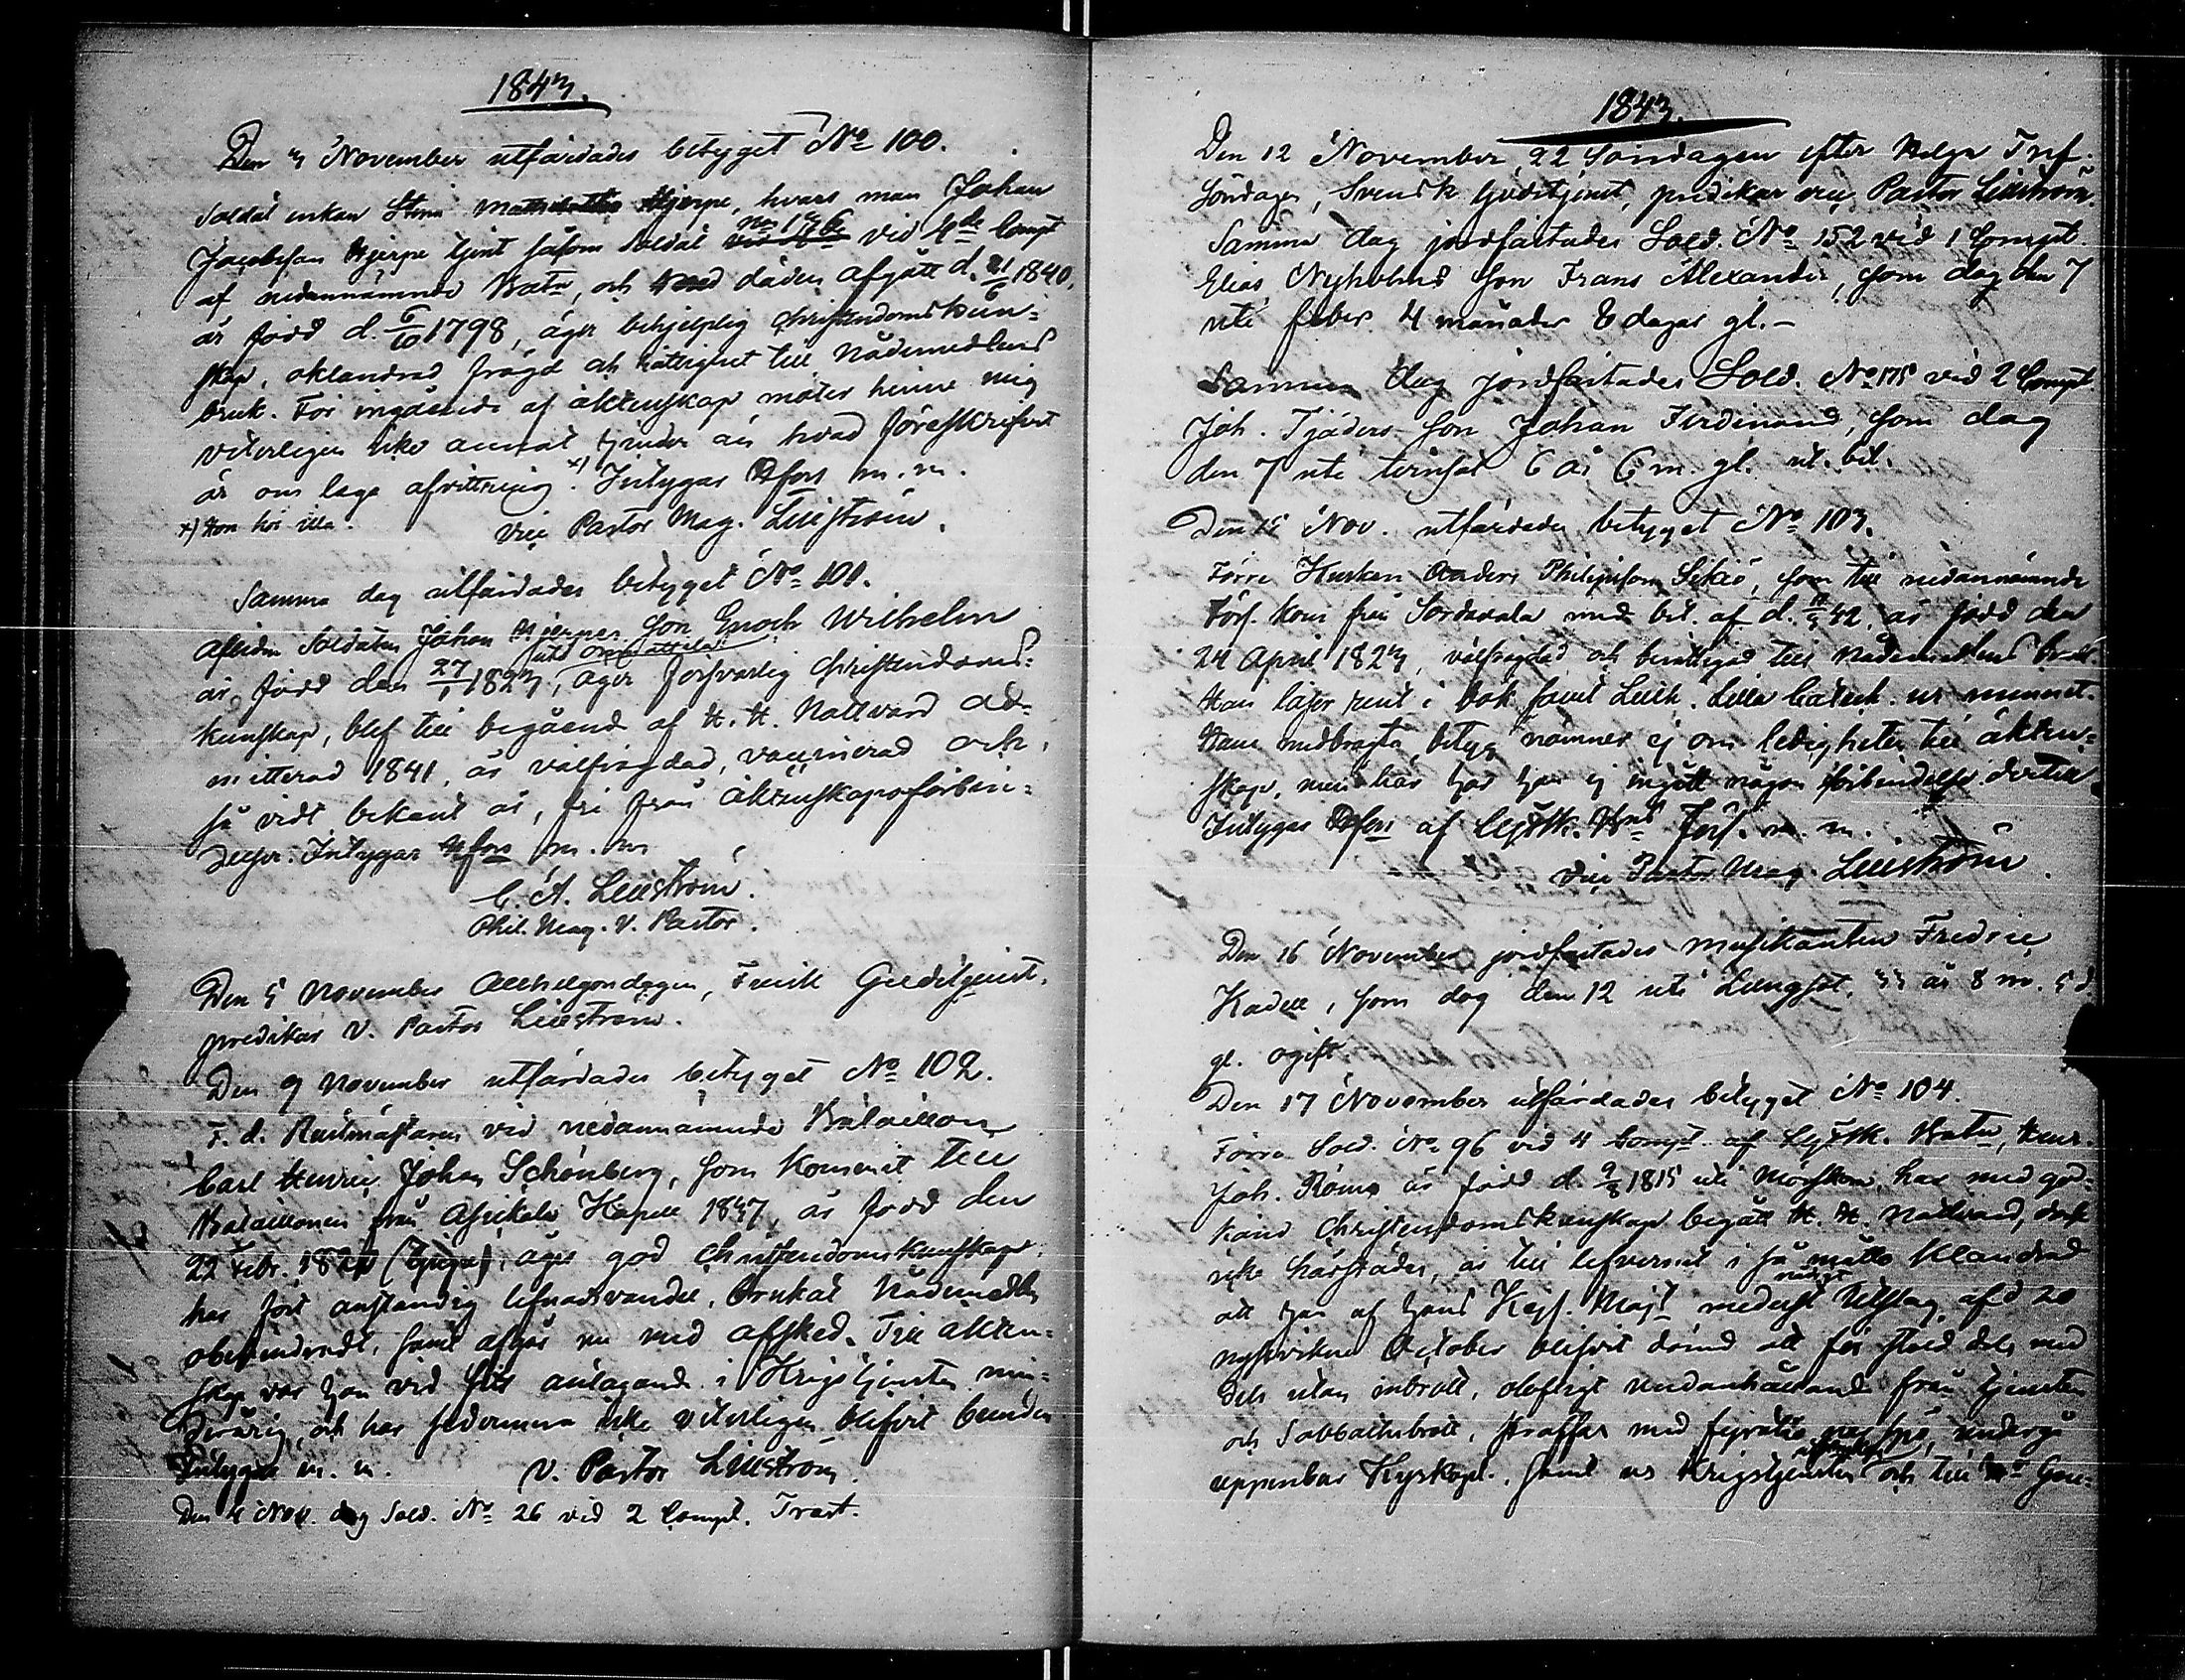 1843.
Den 3 November utfärdades betyget No 100.
Soldat enkan Stina Hjerpe, hvars man Johan
Jacobsson Hjerpe tjent såsom Soldat No 136 vid 4de Compt
af nedannämnde Batn, och med döden afgått d. 21/6 1840,
är född d. 6/10 1798, äger behjelplig Christendomskun-
skap, oklandrad frägd och rättighet till Nådemedlens
bruk. För ingående af äktenskap möter henne mig
veterligen icke annat hinder än hvad föreskrifvet
är om laga afvittring x). Intygar Hfors m. m.
x) Hon hör illa. Vice Pastor Mag. Lilljeström.
Samma dag utfärdades betyget No 101.
Aflidne Soldaten Johan Hjerpes Son Enoch Wilhelm
är född den 27/1 1823, äger försvarlig Christendoms-
kunskap, blef till begående af H. H. Nattvard ad-
mitterad 1841, är välfrägdad, vaccinerad och,
så vidt bekant är, fri från äktenskapsförbin-
delser. Intygar Hfors m. m.
C. A. Lilljeström.
Phil. Mag. V. Pastor.
Den 5 November Allhelgondagen, Finsk Gudstjenst,
predikar V. Pastor Lilljeström.
Den 9 November utfärdades betyget No 102.
F. d. Rustmästaren vid nedannämnde Bataillon
Carl Henric Johan Schönberg, som kommit till
Bataillonen från Asikkala Kapell 1837, är född den
22 Febr. 182, äger god Christendomskunskap,
har fört anständig lefnadsvandel, brukat Nådemedlen
obehindradt, samt afgår nu med afsked. Till äkten-
skap var han vid sitt antagande i Krigstjensten min-
derårig, och har sedermera icke veterligen blifvit bunden
Intygar m. m. V. Pastor Lilljeström.
Den 4 Nov. dog Sold. No 26 vid 2 Compt. Trast.
1843.
Den 12 November 22 Söndagen efter Helga Tref.
Söndagen, Svensk Gudstjenst, predikar vice Pastor Lilljeström.
Samma dag jordfästades Sold. No 152 vid 1 Compt.
Elias Nyholms Son Frans Alexander, som dog den 7
uti feber 4 månader 8 dagar gl. -
Samma dag jordfästades Sold. No 175 vid 2 Compt
Joh. Tjäders Son Johan Ferdinand, som dog
den 7 uti 6 år 6 m. gl.
Den 15 Nov. utfärdades betyget No 103.
Förre Husken Anders Philipsson, som till nedannämnde
Förs. kom från Sordavala med bet. af d. 42, är född den
24 April 1823, välfrägdad och berättigad till Nådemedlens bruk.
Han läser rent i bok samt Luth. Lilla Catech. ur minnet.
Hans medbragta betyg nämner ej om ledigheten till äkten-
skap, men här har han ej ingått någon förbindelse dertill.
Intygar Hfors af m. m.
Vice Pastor Mag. Lilljeström.
Den 16 November jordfästades Musikanten Fredric
Kadell, som dog den 12 uti Lungsot, 33 år 8 m. 5 d
gl. ogift
Den 17 November utfärdades betyget No 104.
Förre Sold. No 96 vid 4 Compt af Batn, Henr.
Joh. Röms är född d. 9/8 1815 uti Mörskom, har med god-
känd Christendomskunskap begått H. H. Nattvard, dock
icke härstädes, är till lefvernet i så måtto klandrad
att han af Hans Kejs. Majt medelst nådigt Utslag af d 20
nystvikne October blifvit dömd att för stöld dels med
dels utan inbrott, olofligt undanhållande från tjensten
och Sabbathsbrott, straffas med spö, undergå
uppenbar Kyrkopl. samt ur Krigstjensten och till